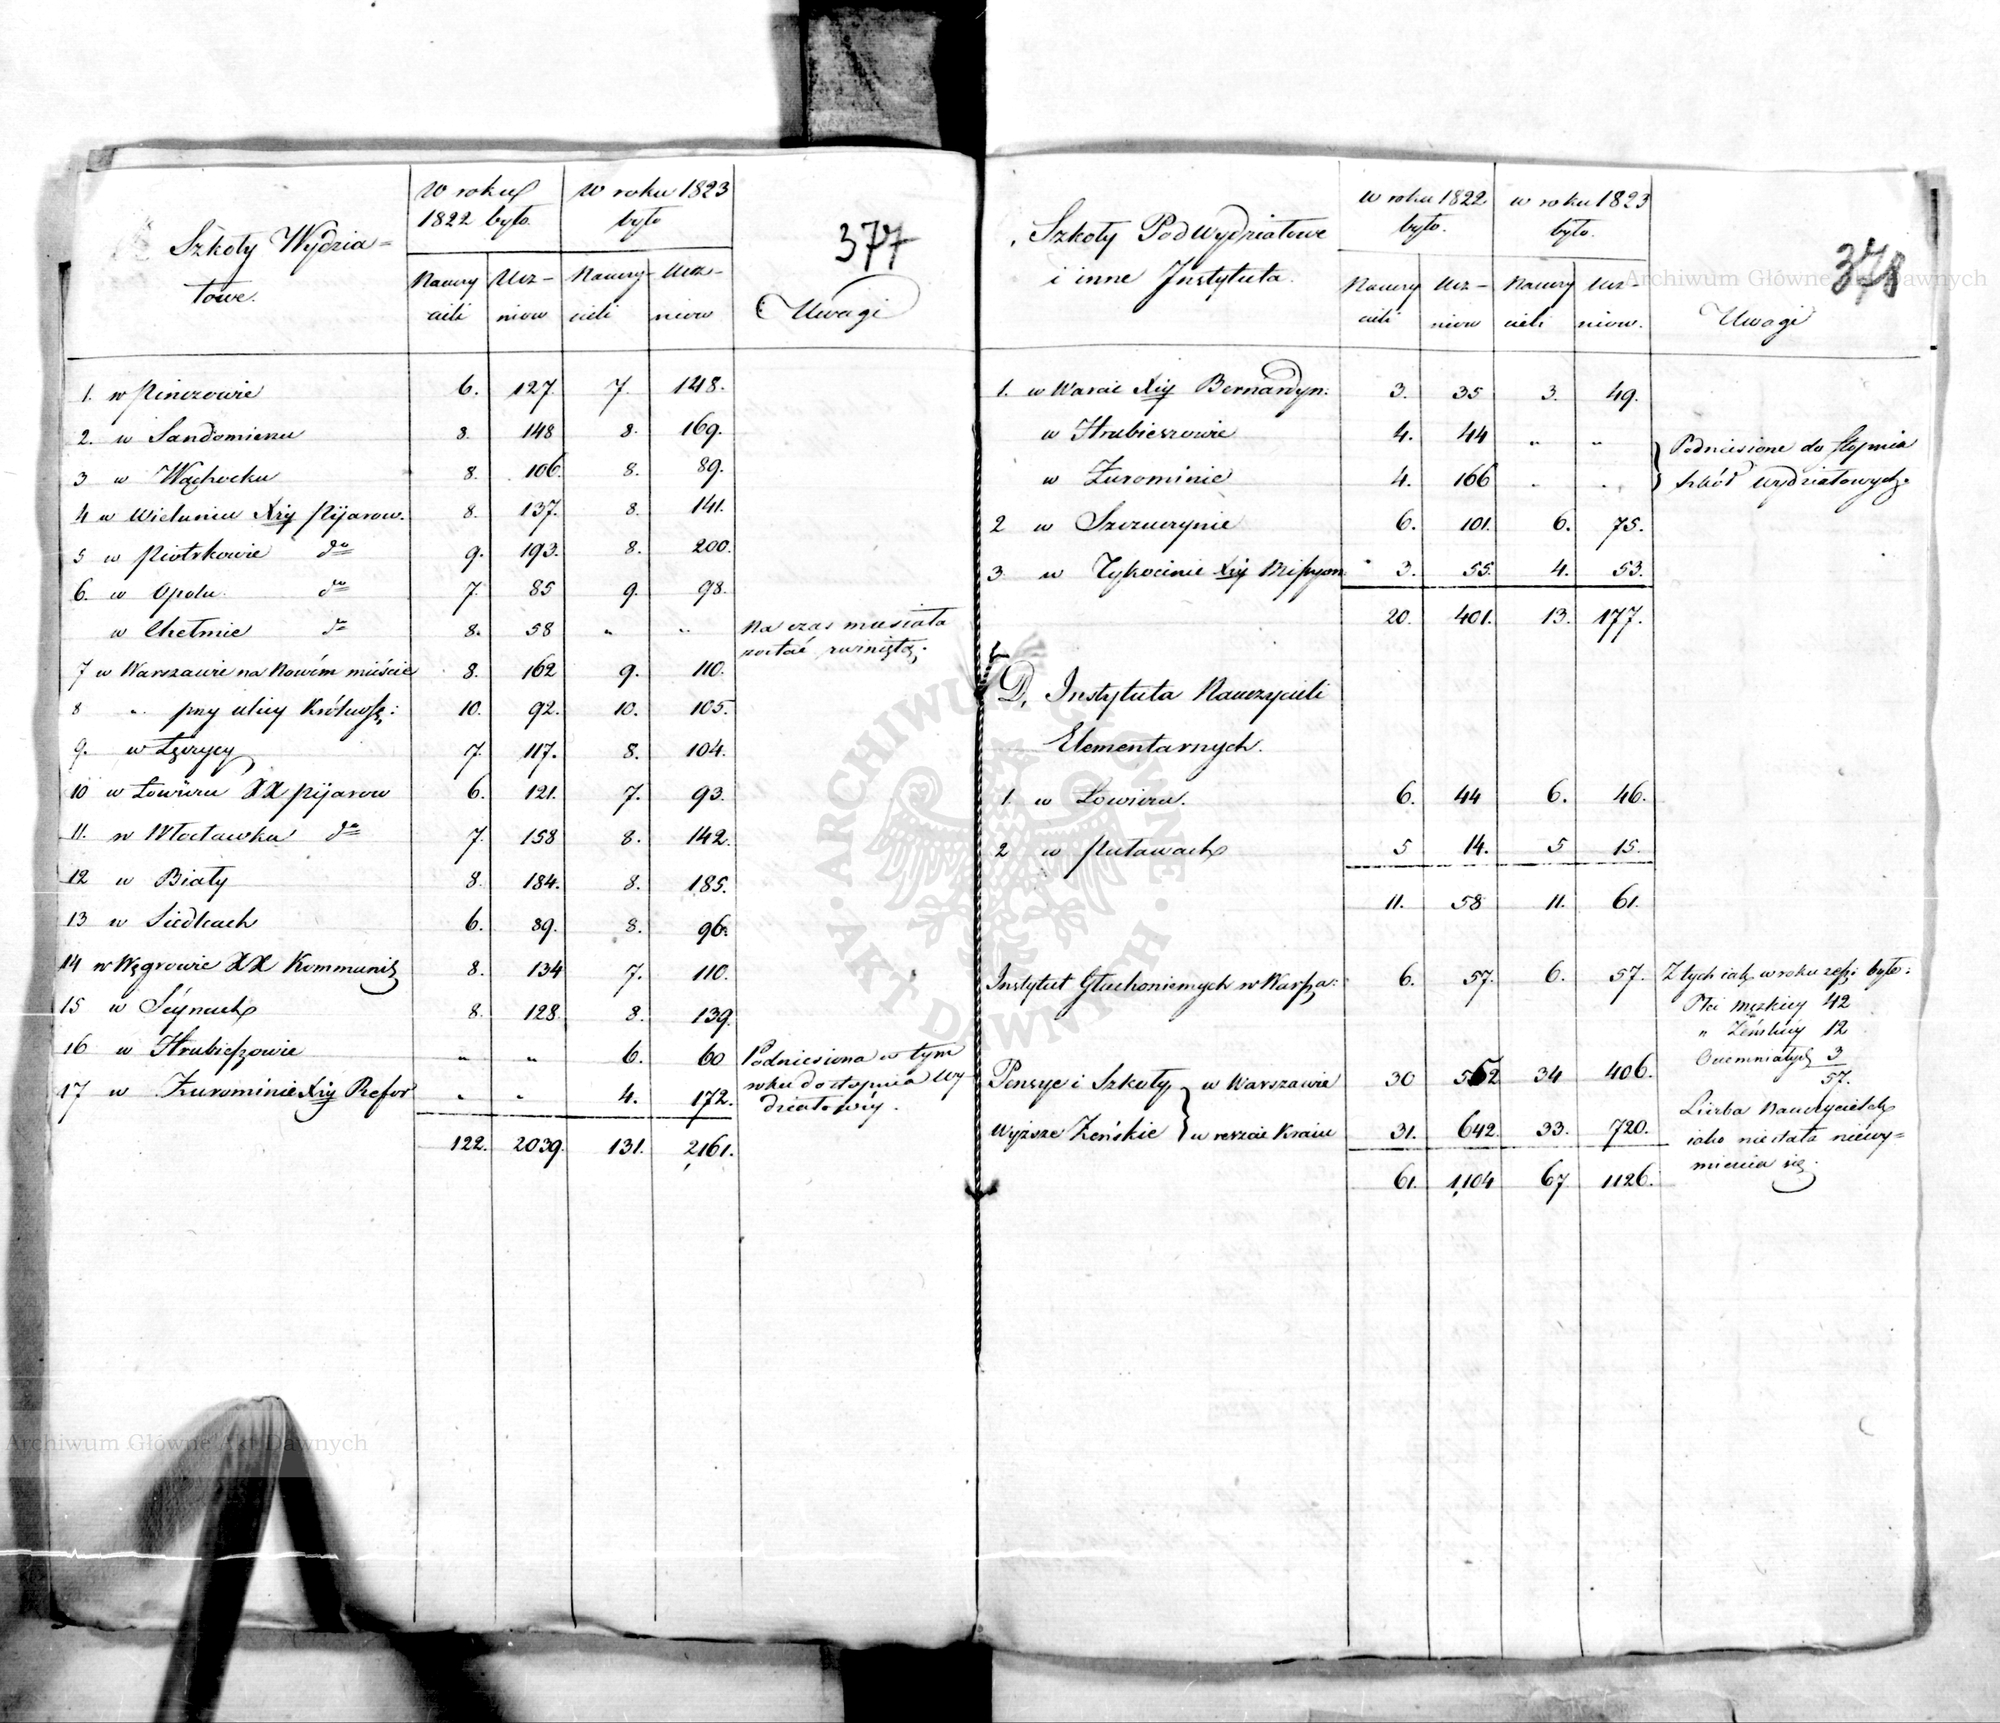 377
Szkoły Wydzia=
łowe.
W roku
1822 było.
W roku 1823
było
Nauczy
cieli
Ucz–
niow
Nauczy–
cieli
Ucz–
niow
Uwagi
1. w Pinczowie 6. 127. 7. 148.
2. w Sandomierzu 8. 148 8. 169.
3 w Wąchocku 8. 106. 8. 89.
4 w Wieluniu Xży Pijarow. 8. 137. 8. 141.
5 w Piotrkowie do 9. 193. 8. 200.
6. w Opolu do 7. 85 9. 98.
w Chełmie do 8. 58 „ „ Na czas musiała
zostać zwiniętą.
7 w Warszawie na Nowém mieście 8. 162 9. 110.
8 „ przy ulicy Królewsk: 10. 92. 10. 105.
9. w Łęczycy 7. 117. 8. 104.
10 w Łowiczu XX Pijarow 6. 121. 7. 93.
11. w Włocławku do 7. 158 8. 142.
12 w Biały 8. 184. 8. 185.
13 w Siedlcach 6. 89. 8. 96.
14 w Węgrowie XX Kommunis 8. 134 7. 110.
15 w Seynach 8. 128. 8. 139.
16 w Hrubieszowie „ „ 6. 60 Podniesiona w tym
17 w Zurominie Xży Refor „ „ 4. 172. roku do stopnia Wy
działowéy.
122. 2039. 131. 2161.
378
Szkoły Podwydziałowe
i inne Instytuta.
w roku 1822
było.
w roku 1823
było.
Nauczy
cieli
Ucz–
niow
Nauczy
cieli
Ucz–
niow.
Uwagi
1. w Warcie Xży Bernardyn. 3. 35 3. 49.
w Hrubieszowie 4. 44 „ „ Podniesione do stopnia
w Żurominie 4. 166 „ „ szkół wydziałowych.
2 w Szczuczynie 6. 101. 6. 75.
3 w Tykocinie Xży Missyon. 3. 55. 4. 53.
20. 401. 13. 177.
D, Instytuta Nauczycieli
Elementarnych.
1. w Łowiczu. 6. 44 6. 46.
2 w Puławach 5 14. 5 15.
11. 58 11. 61.
Instytut Głuchoniemych w Warsza: 6. 57. 6. 57. Z tych iak w roku zesz: było:
Płci męzkiey 42
„ Żeńskiéy 12
Ociemniałych 3
57.
Pensye i Szkoły } w Warszawie 30 562 34 406.
Wyższe Żeńskie } w reszcie Kraiu 31. 642 33. 720.
Liczba Nauczycielek
iako niestała niewy=
mienia się.
61. 1,104 67 1126.
Archiwum Główne Akt Dawnych
Archiwum Główne Akt Dawnych
ARCHIWUM GŁÓWNE · AKT DAWNYCH ·